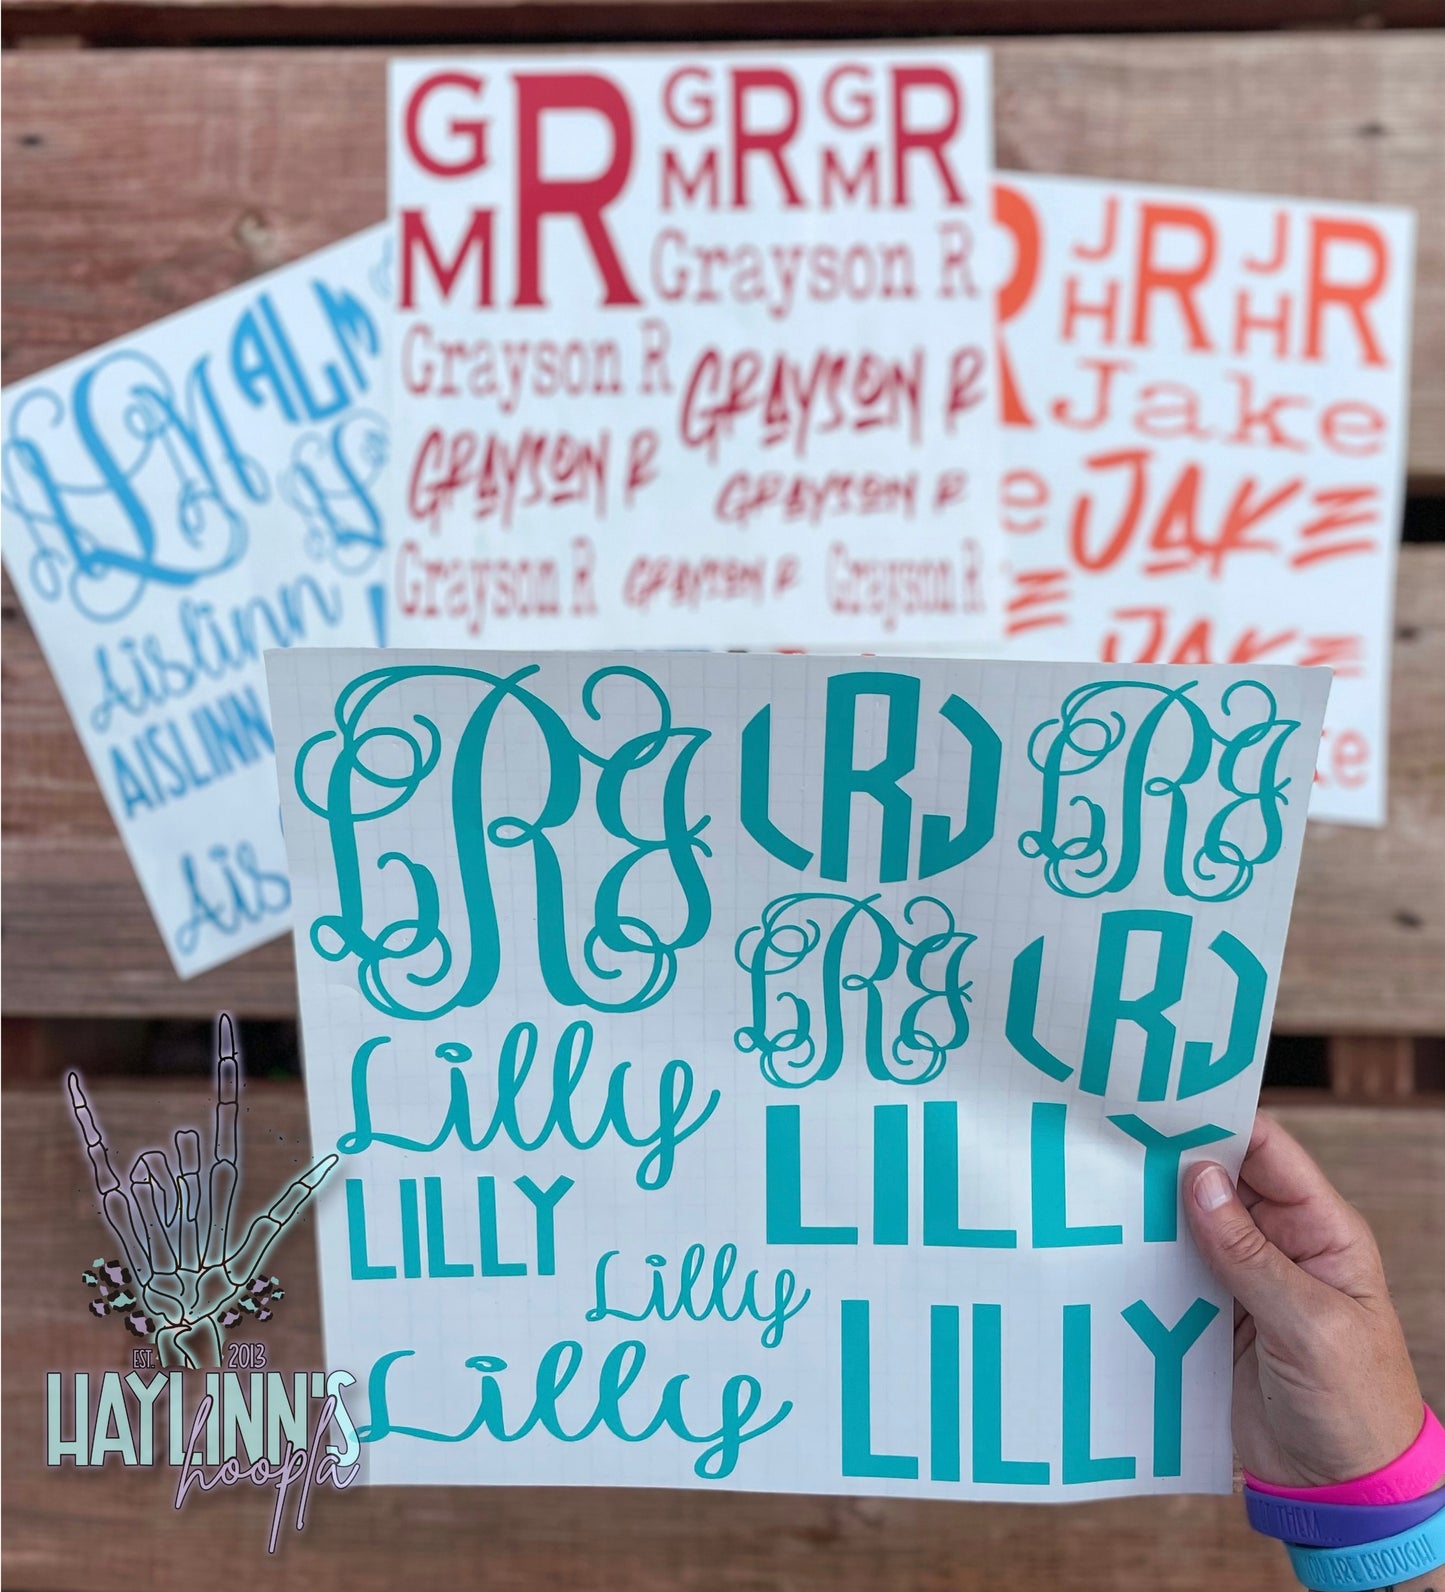 G R G R G R
M M M
Grayson R
Grayson R
GRAYSON R
GRAYSON R
GRAYSON R
Grayson R
GRAYSON R
Grayson R
ALM
Aislinn
AISLINN
Ais
J R J R
H H
Jake
JAKE
JAKE
LRJ LRJ LRJ
LRJ LRJ
Lilly
LILLY
LILLY
Lilly
Lilly
LILLY
EST. 2013
HAYLINN'S
hoopla
YOU ARE ENOUGH!